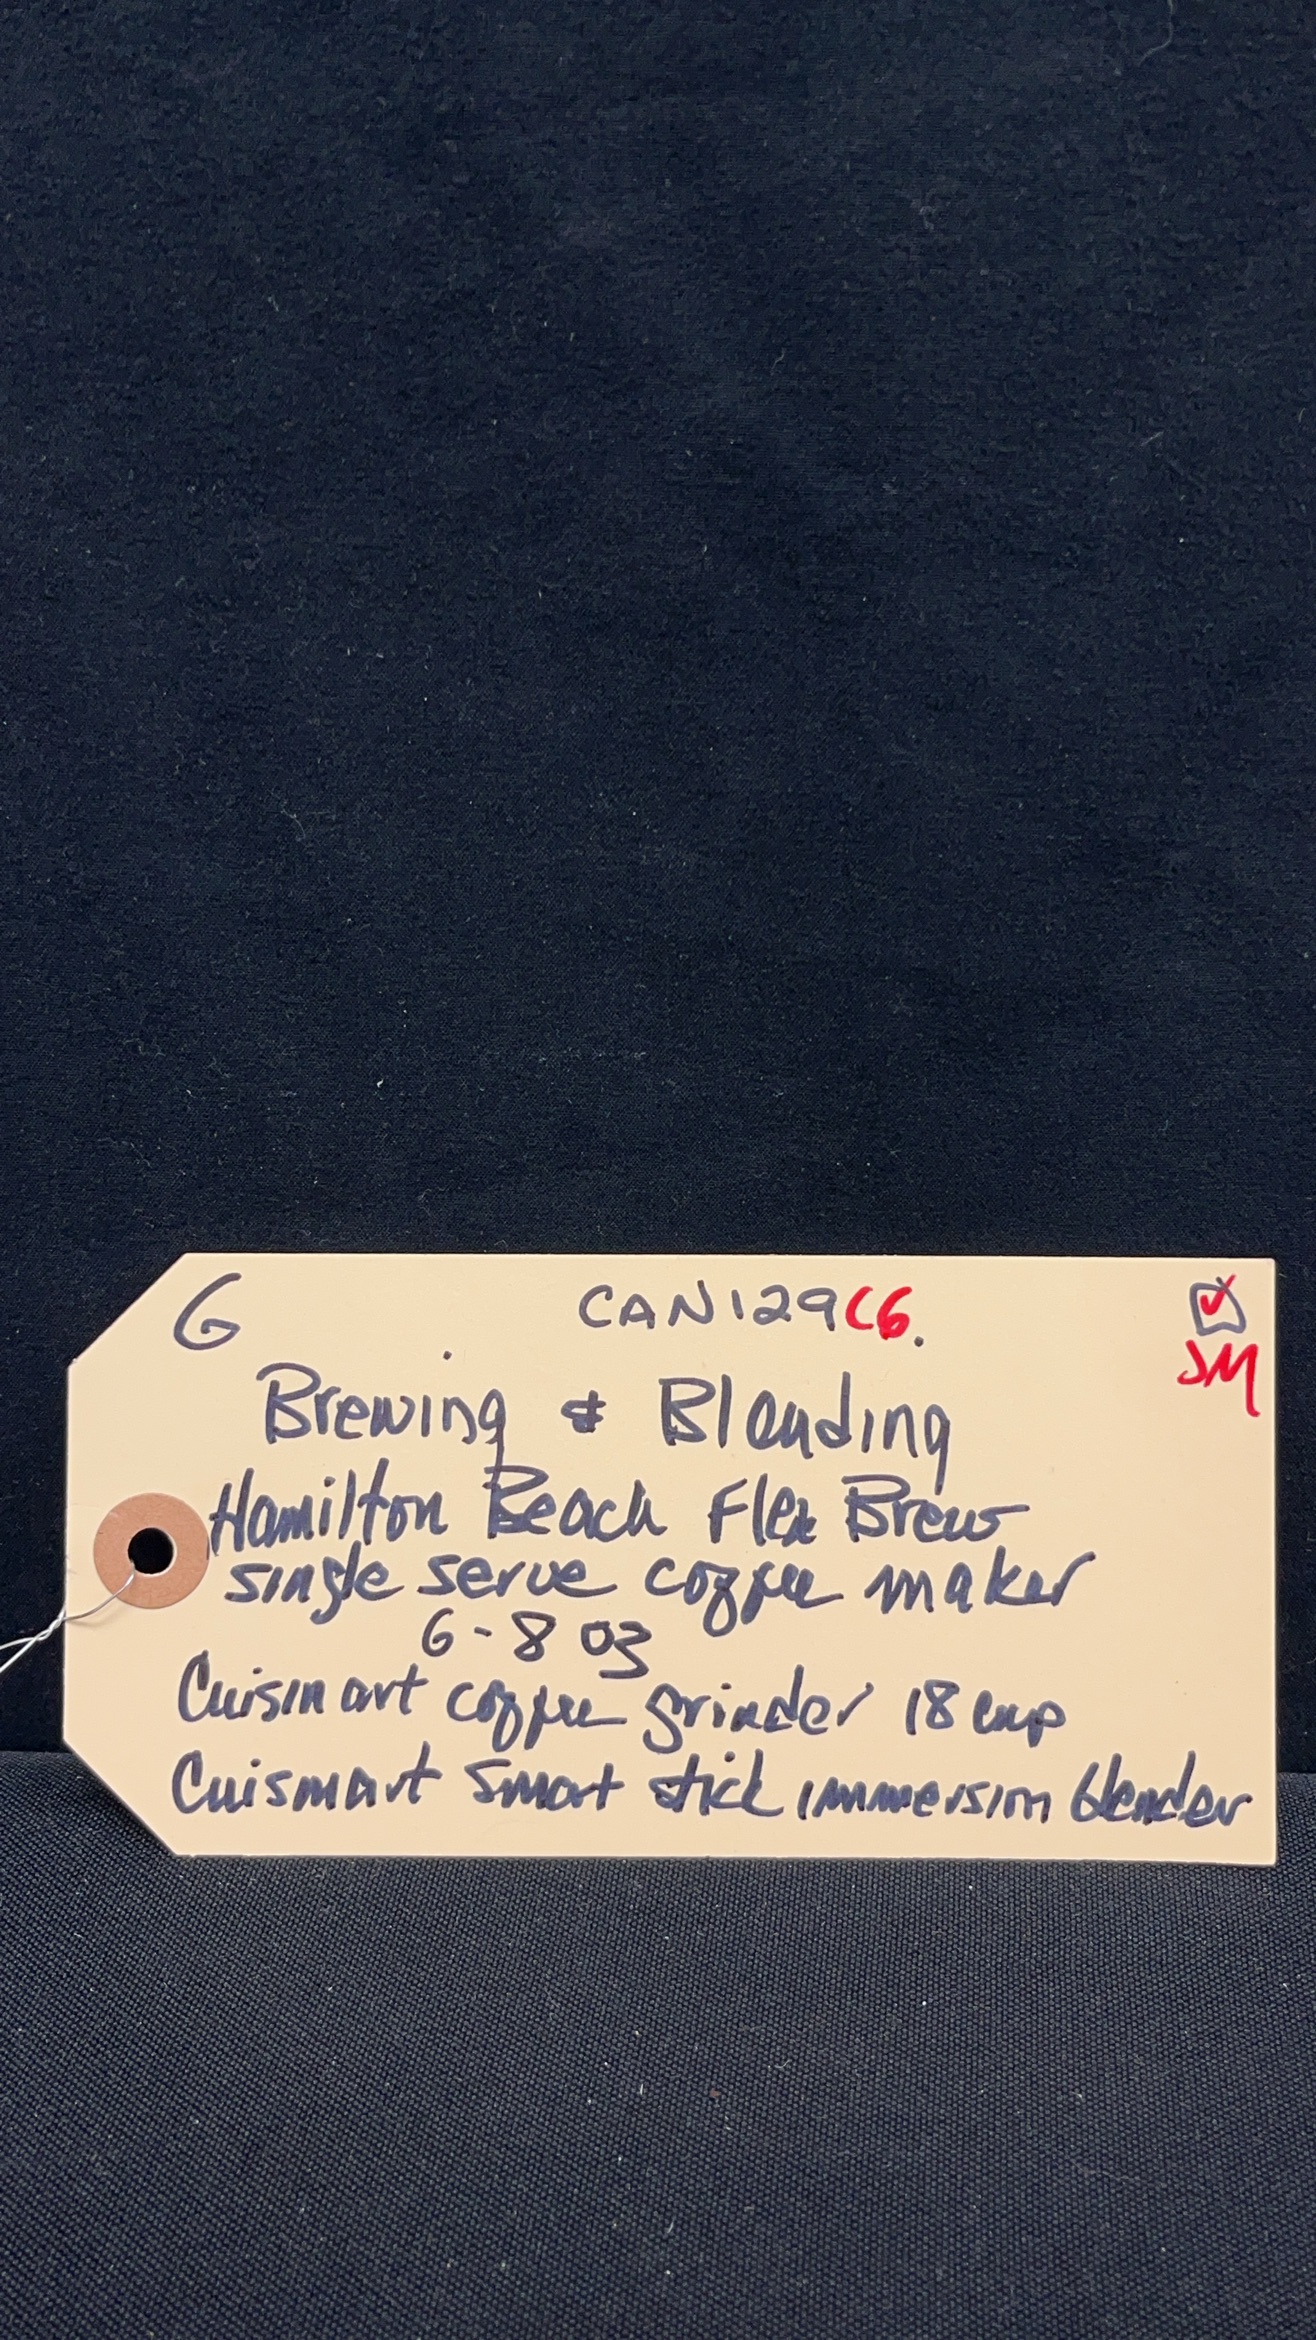 G CAN129C6. ☑
JM
Brewing & Blending
Hamilton Beach Flex Brew
single serve coffee maker
6-8 oz
Cuisinart coffee grinder 18 cup
Cuisinart Smart stick immersion blender